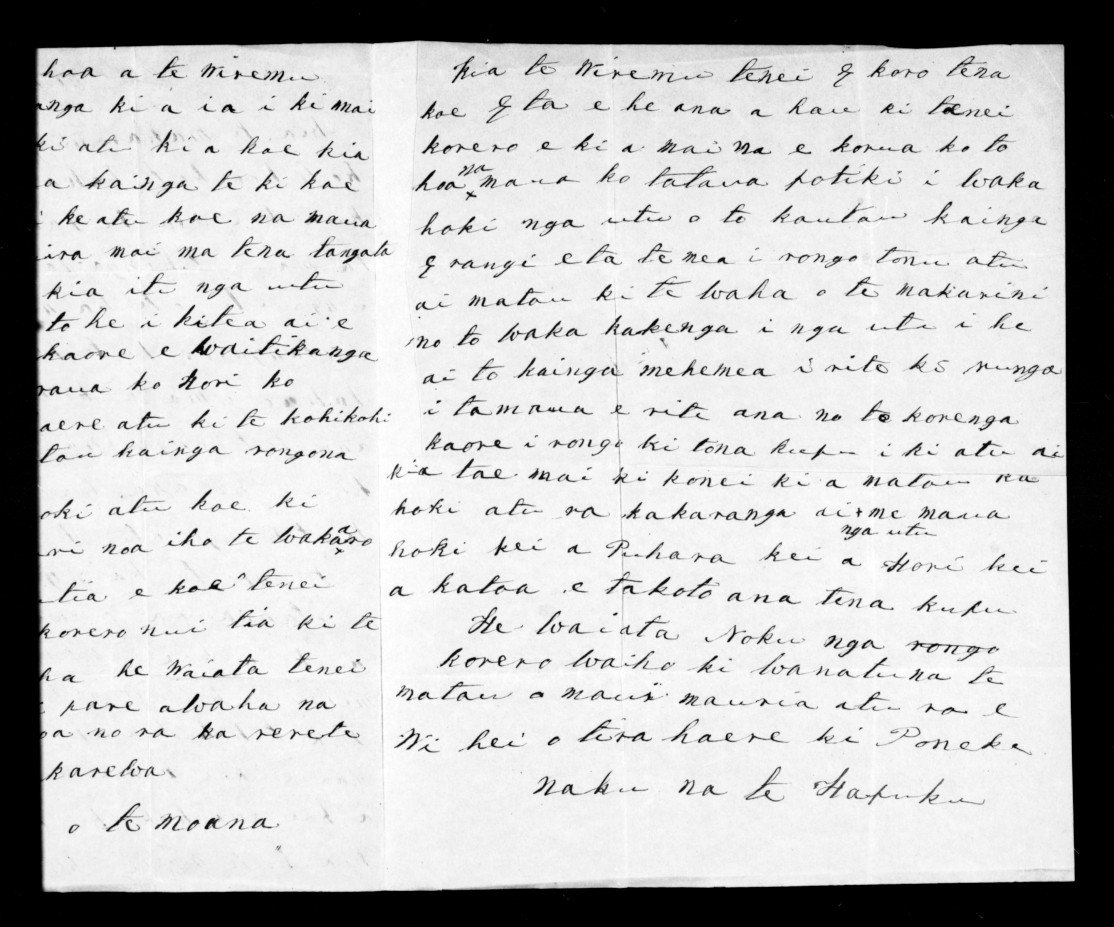 hoa a te Wiremu
anga ki a ia i ki mai
ki atu ki a koe kia
a kainga te ki koe
i ke atu koe na maua
ira mai ma tena tangata
kia itu nga utu
to he i kitea ai e
kaore e waitikanga
raua ko Hori ko
aere atu ki te kohikohi
tou kainga rongona
oki atu koe ki
ri noa iho te wakaaro
tia e koe tenei
korero nui tia ki te
ha he Waiata tenei
pare awaha na
oa no ra ka rerete
karewa
o te moana
kia te Wiremu tenei E koro tena
koe E ta e he ana a hau ki tenei
korero e ki a mai na e korua ko to
hoa na maua ko tatava potiki i waka
hoki nga utu o to koutou kainga
E rangi e ta te mea i rongo tonu atu
ai matou ki te waha o te makarini
no to waka kakenga i nga utu i he
ai to kainga mehemea i rite ki runga
i ta maua e rite ana no te korenga
kaore i rongo ki tona kupu i ki atu ai
kia tae mai ki konei ki a matou ka
hoki atu ra kakaranga ai me maua
nga utu
hoki kei a Puhara kei a Hori kei
a katoa e takoto ana tena kupu
He Waiata Noku nga rongo
korero waiho ki wanatuna te
matau a maui mauria atu ra e
Wi hei o tira haere ki Poneke
naku na te Hapuku